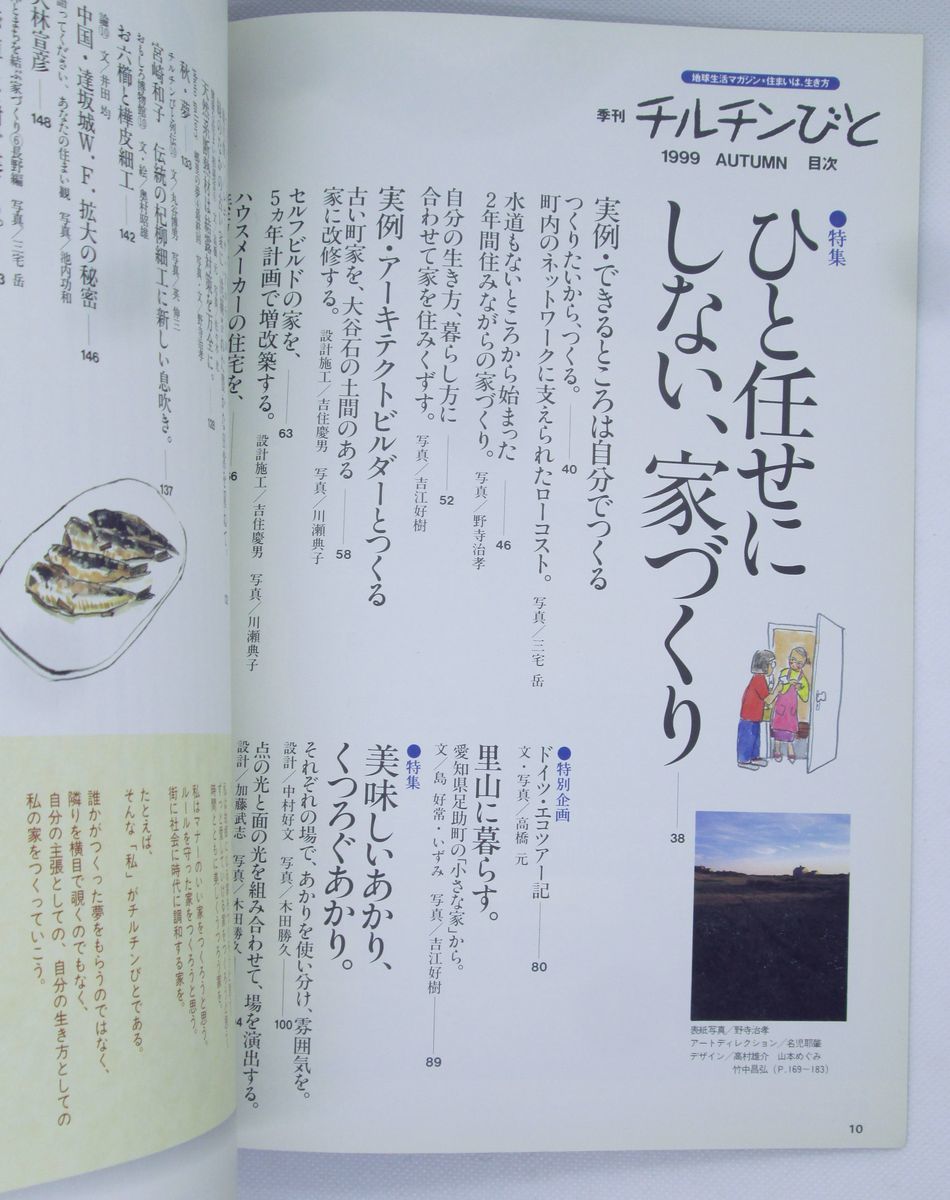 地球生活マガジン・住まいは、生き方
季刊 チルチンびと
1999 AUTUMN 目次
●特集
ひと任せに
しない、家づくり
38
実例・できるところは自分でつくる
つくりたいから、つくる。 40
町内のネットワークに支えられたローコスト。 写真／三宅 岳
水道もないところから始まった 46
2年間住みながらの家づくり。 写真／野寺治孝
自分の生き方、暮らし方に 52
合わせて家を住みくずす。 写真／吉江好樹
実例・アーキテクトビルダーとつくる
古い町家を、大谷石の土間のある 58
家に改修する。 設計施工／吉住慶男 写真／川瀬典子
セルフビルドの家を、 63
5ヵ年計画で増改築する。 設計施工／吉住慶男 写真／川瀬典子
ハウスメーカーの住宅を、
●特別企画
ドイツ・エコツアー記 80
文・写真／高橋 元
里山に暮らす。 89
愛知県足助町の「小さな家」から。
文／島 好常・いずみ 写真／吉江好樹
●特集
美味しいあかり、
くつろぐあかり。
それぞれの場で、あかりを使い分け、雰囲気を。
設計／中村好文 写真／木田勝久 100
点の光と面の光を組み合わせて、場を演出する。
設計／加藤武志 写真／木田勝久
表紙写真／野寺治孝
アートディレクション／名児耶肇
デザイン／高村雄介 山本めぐみ
竹中昌弘（P.169〜183）
10
秋・夢 133
チルチンびと列伝⑩ 文／丸谷博男 写真／英 伸三
宮崎和子 伝統の杞柳細工に新しい息吹き。 137
おもしろ博物館⑩ 文・絵／奥村昭雄
お六櫛と樺皮細工 142
論⑩ 文／井田 均
中国・達坂城W.F.拡大の秘密 146
語ってください、あなたの住まい観 写真／池内功和
大林宣彦 148
とまちを結ぶ家づくり⑥長野編 写真／三宅 岳
私はマナーのいい家をつくろうと思う。
ルールを守った家をつくろうと思う。
街に社会に時代に調和する家を。
たとえば、
そんな「私」がチルチンびとである。
誰かがつくった夢をもらうのではなく、
隣りを横目で覗くのでもなく、
自分の主張としての、自分の生き方としての
私の家をつくっていこう。